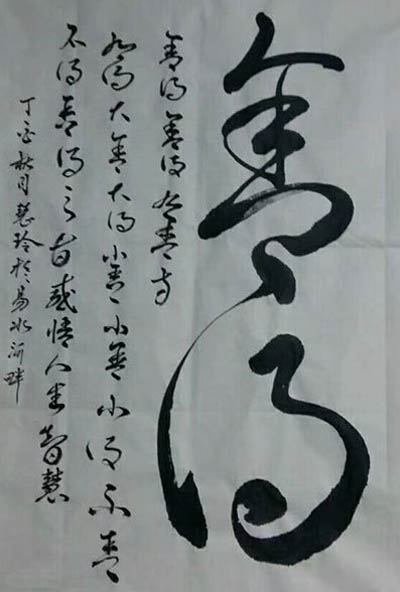 舍得
舍得舍得舍方
得大舍大得小舍小舍小得不舍
不得舍得之感人生智慧
丁酉秋月慧玲於易水河畔